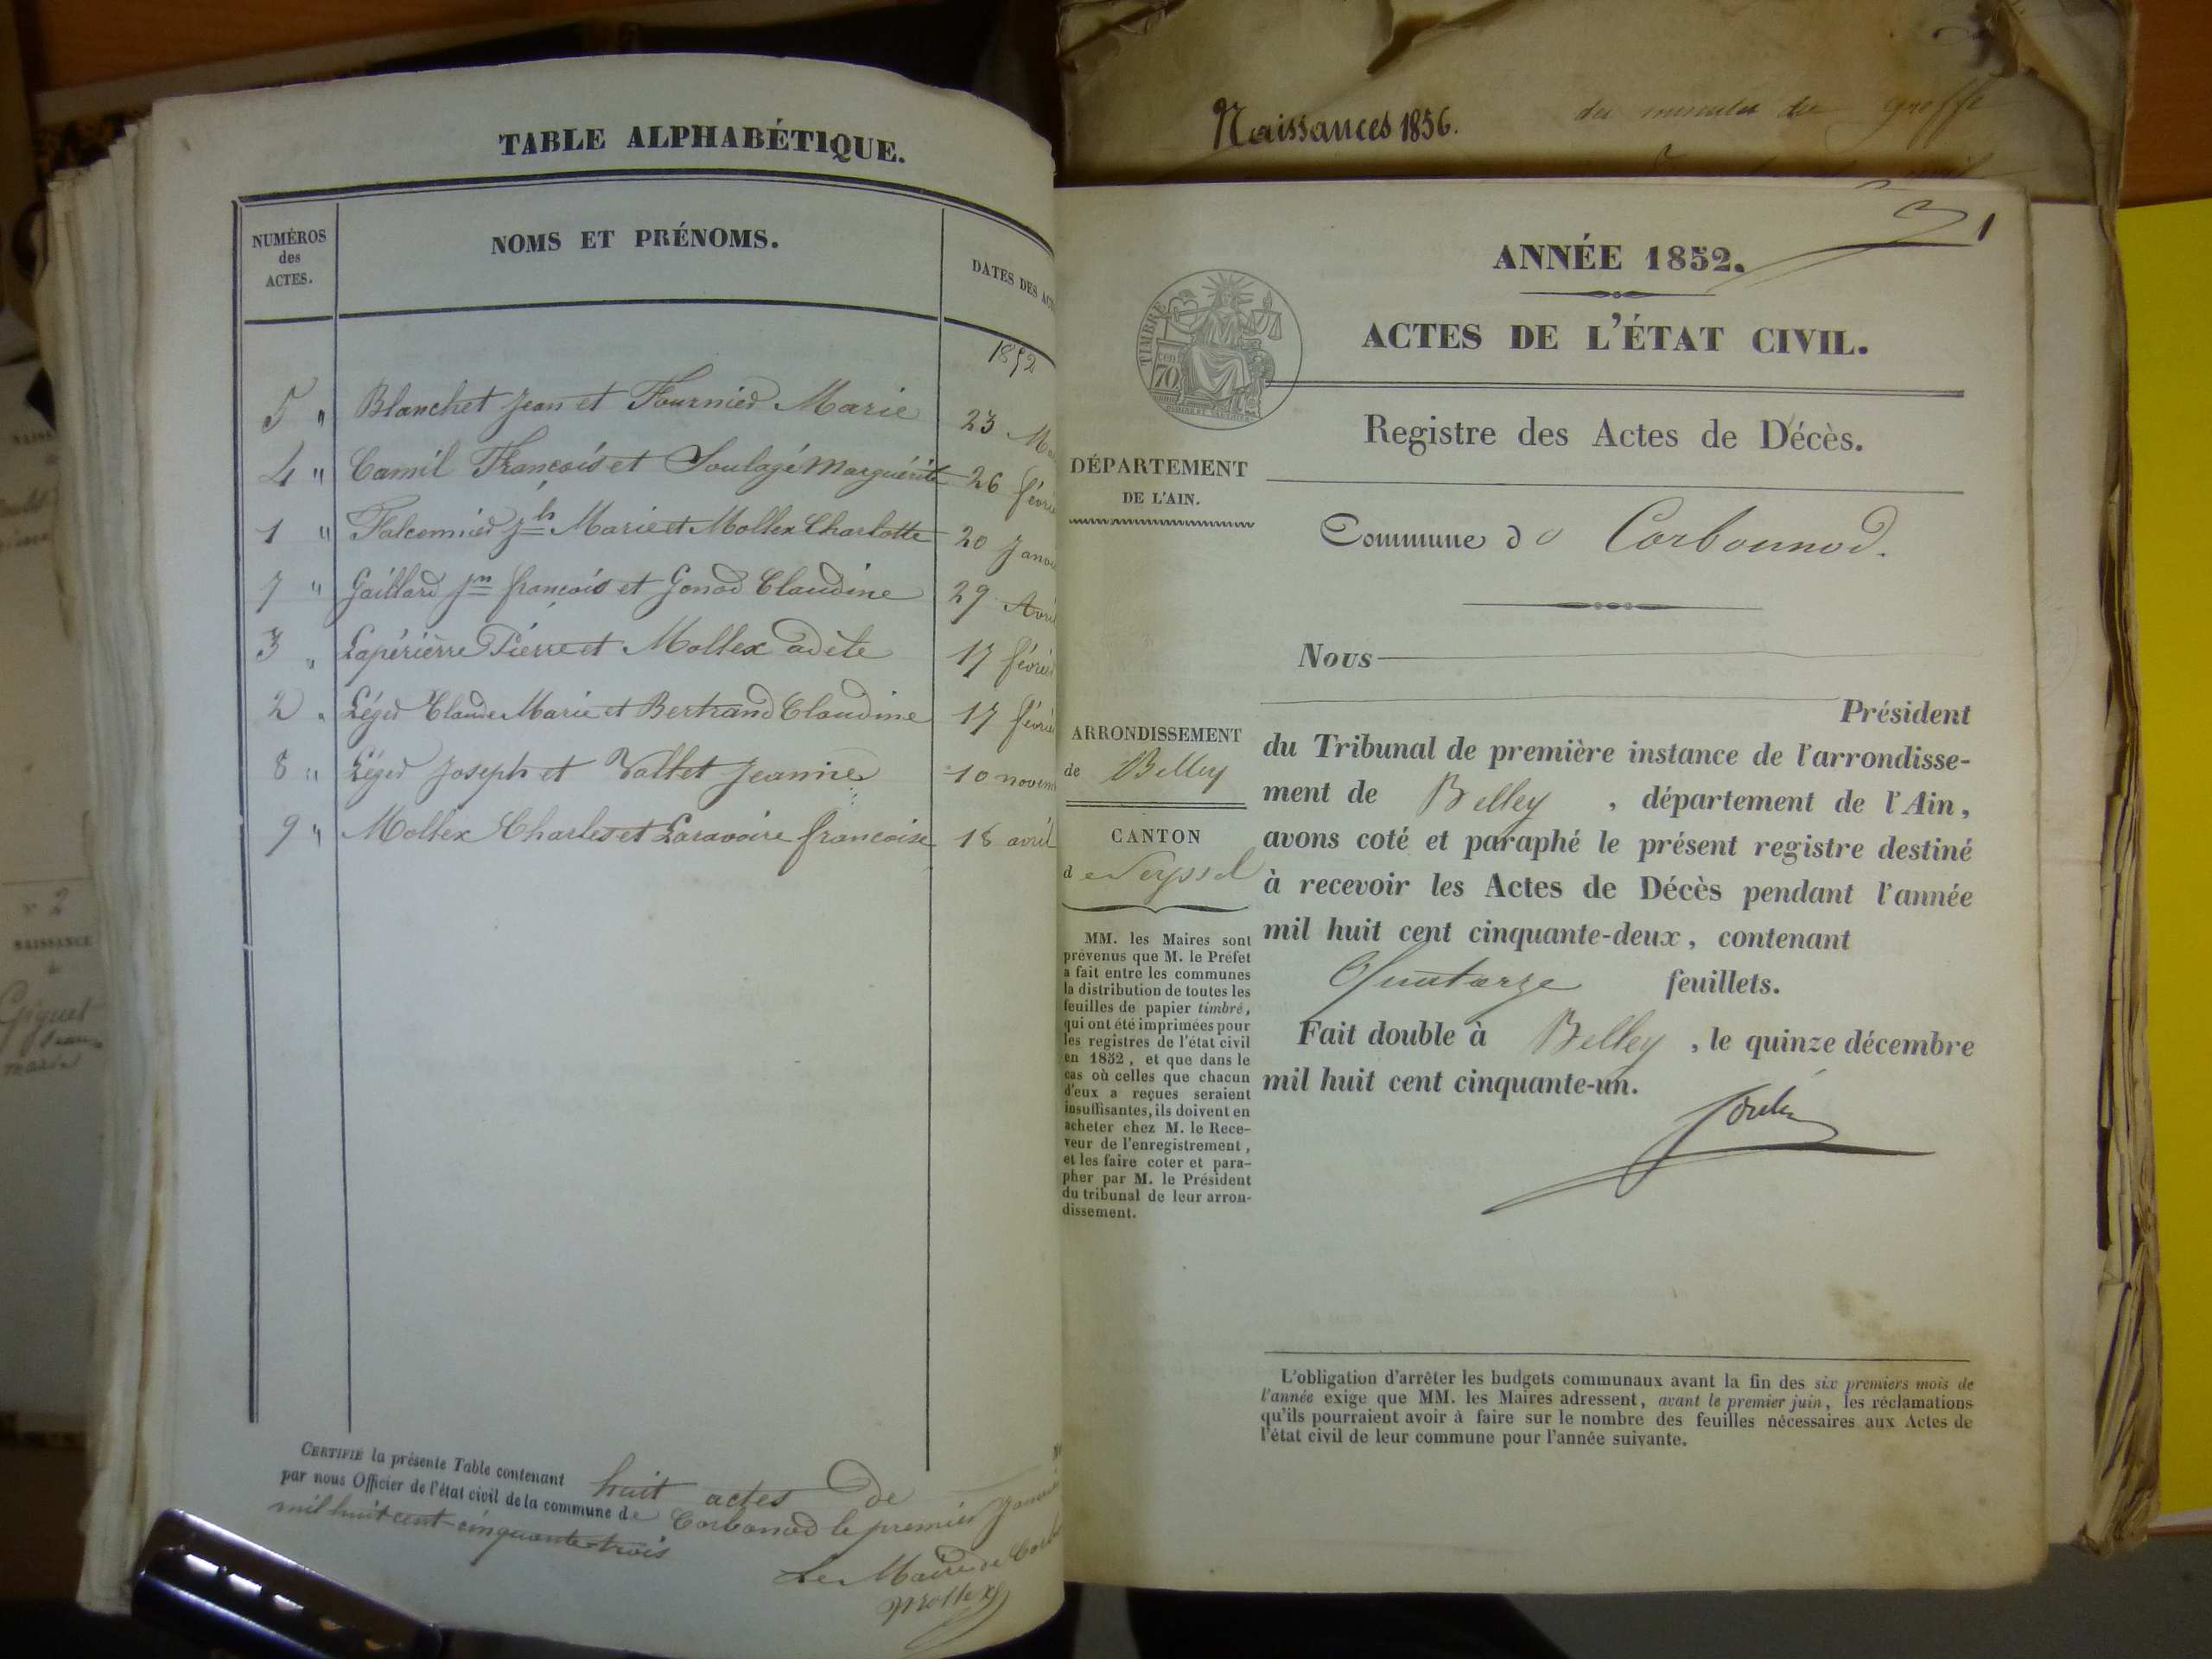 TABLE ALPHABÉTIQUE.
NUMÉROS
des
ACTES.
NOMS ET PRÉNOMS.
DATES DES
1852
5 " Blanchet Jean et Fournier Marie 23
4 " Camil François et Soulagé Marguérite 26 févri
1 " Falcomier Jh Marie et Mollex Charlotte 20 Janvi
7 " Gaillard Jn françois et Gonod Claudine 29 Avril
3 " Lapérièrre Pierre et Mollex adèle 17 févrié
2 " Léger Claude Marie et Bertrand Claudine 17 févrié
8 " Léger Joseph et Vallet Jeanne 10 novem
9 " Mollex Charles et Laravoire françoise 18 avril
CERTIFIÉ la présente Table contenant huit actes de
par nous Officier de l'état civil de la commune de Corbonod le premier Janvié
mil huit cent cinquante trois
Le Maire de
Mollex
Naissances 1856.
du greffe
1
ANNÉE 1852.
ACTES DE L'ÉTAT CIVIL.
TIMBRE
70
Registre des Actes de Décès.
DÉPARTEMENT
DE L'AIN.
Commune de Corbonnod.
Nous
Président
ARRONDISSEMENT
de Belley
CANTON
de Seyssel
du Tribunal de première instance de l'arrondisse-
ment de Belley , département de l'Ain,
avons coté et paraphé le présent registre destiné
à recevoir les Actes de Décès pendant l'année
mil huit cent cinquante-deux, contenant
Quatorze feuillets.
Fait double à Belley , le quinze décembre
mil huit cent cinquante-un.
MM. les Maires sont
prévenus que M. le Préfet
a fait entre les communes
la distribution de toutes les
feuilles de papier timbré,
qui ont été imprimées pour
les registres de l'état civil
en 1852, et que dans le
cas où celles que chacun
d'eux a reçues seraient
insuffisantes, ils doivent en
acheter chez M. le Rece-
veur de l'enregistrement,
et les faire coter et para-
pher par M. le Président
du tribunal de leur arron-
dissement.
L'obligation d'arrêter les budgets communaux avant la fin des six premiers mois de
l'année exige que MM. les Maires adressent, avant le premier juin, les réclamations
qu'ils pourraient avoir à faire sur le nombre des feuilles nécessaires aux Actes de
l'état civil de leur commune pour l'année suivante.
N° 2
NAISSANCE
de